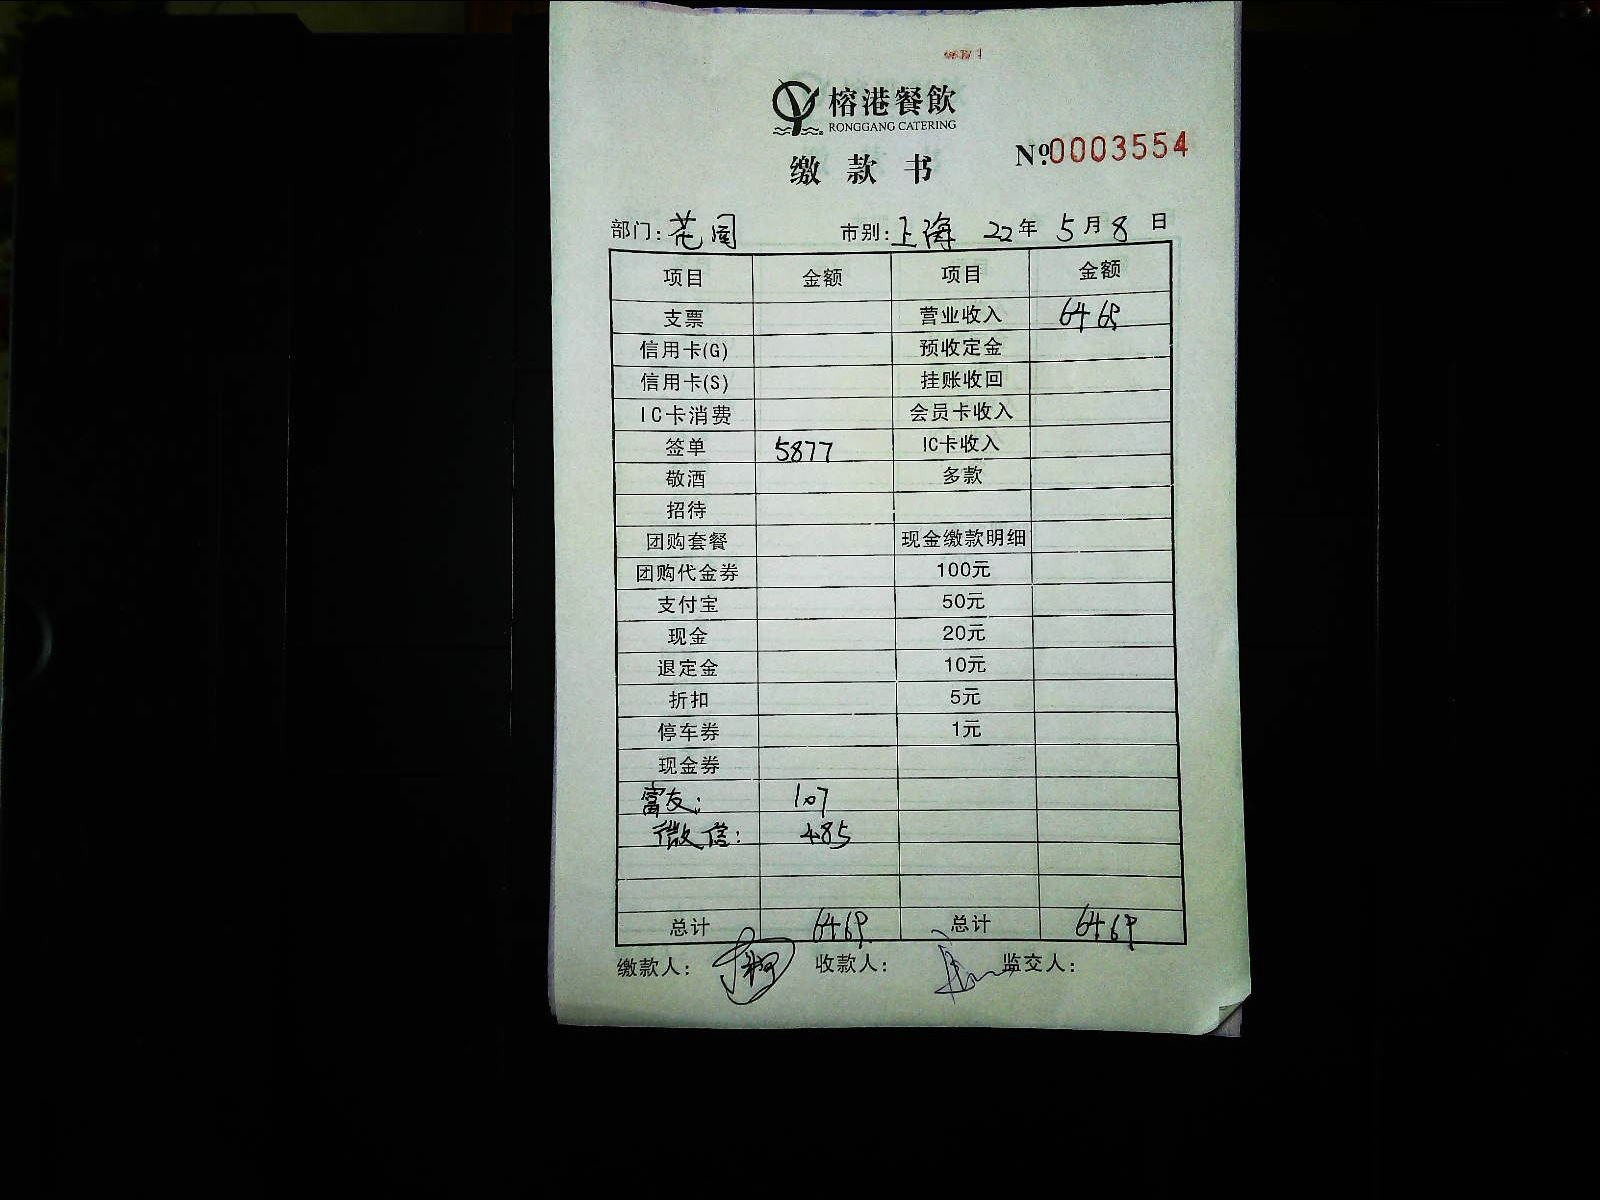 榕港餐飲
RONGGANG CATERING
缴款书 Nº.0003554
部门: 花园 市别: 上海 22年 5月8日
项目 金额 项目 金额
支票 营业收入 6469
信用卡(G) 预收定金
信用卡(S) 挂账收回
IC卡消费 会员卡收入
签单 5877 IC卡收入
敬酒 多款
招待
团购套餐 现金缴款明细
团购代金券 100元
支付宝 50元
现金 20元
退定金 10元
折扣 5元
停车券 1元
现金券
富友: 107
微信: 485
总计 6469 总计 6469
缴款人: 收款人: 监交人: